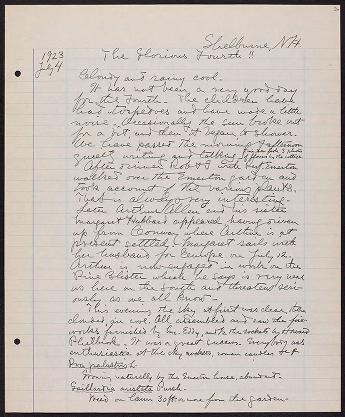 Shelburne, N.H.
1923
July 4
The Glorious Fourth!!
Cloudy and rainy cool.
It has not been a very good day
for the Fourth. The children have
had torpedoes and have made a little
noise. Occasionally the sun broke out
for a bit, and then it began to shower.
We have passed the morning & afternoon
quietly writing and talking.
After dinner Robt E. and I
walked over the Emerton garden and
took account of the various plants.
That is always very interesting.
Later Arthur Allen and his sister
Margaret Hubbard appeared having driven
up from Conway where Arthur is at
present settled. Margaret sails with
her husband for Europe on July 12.
Arthur is now engaged in work on the
Pine Blister which he says is very bad
here in the South and threatens
as we all know.
This evening the sky at first was clear, later
closed in. All assembled and saw the fire
works furnished by Mr. Eddy, and the rockets by
It was a great success. Everybody was
enthusiastic at the sky rockets, roman candles &
palustris
Growing naturally by the Emerton house, abundant.
Gaillardia aristata Pursh.
on lawn 30 ft or more from the garden